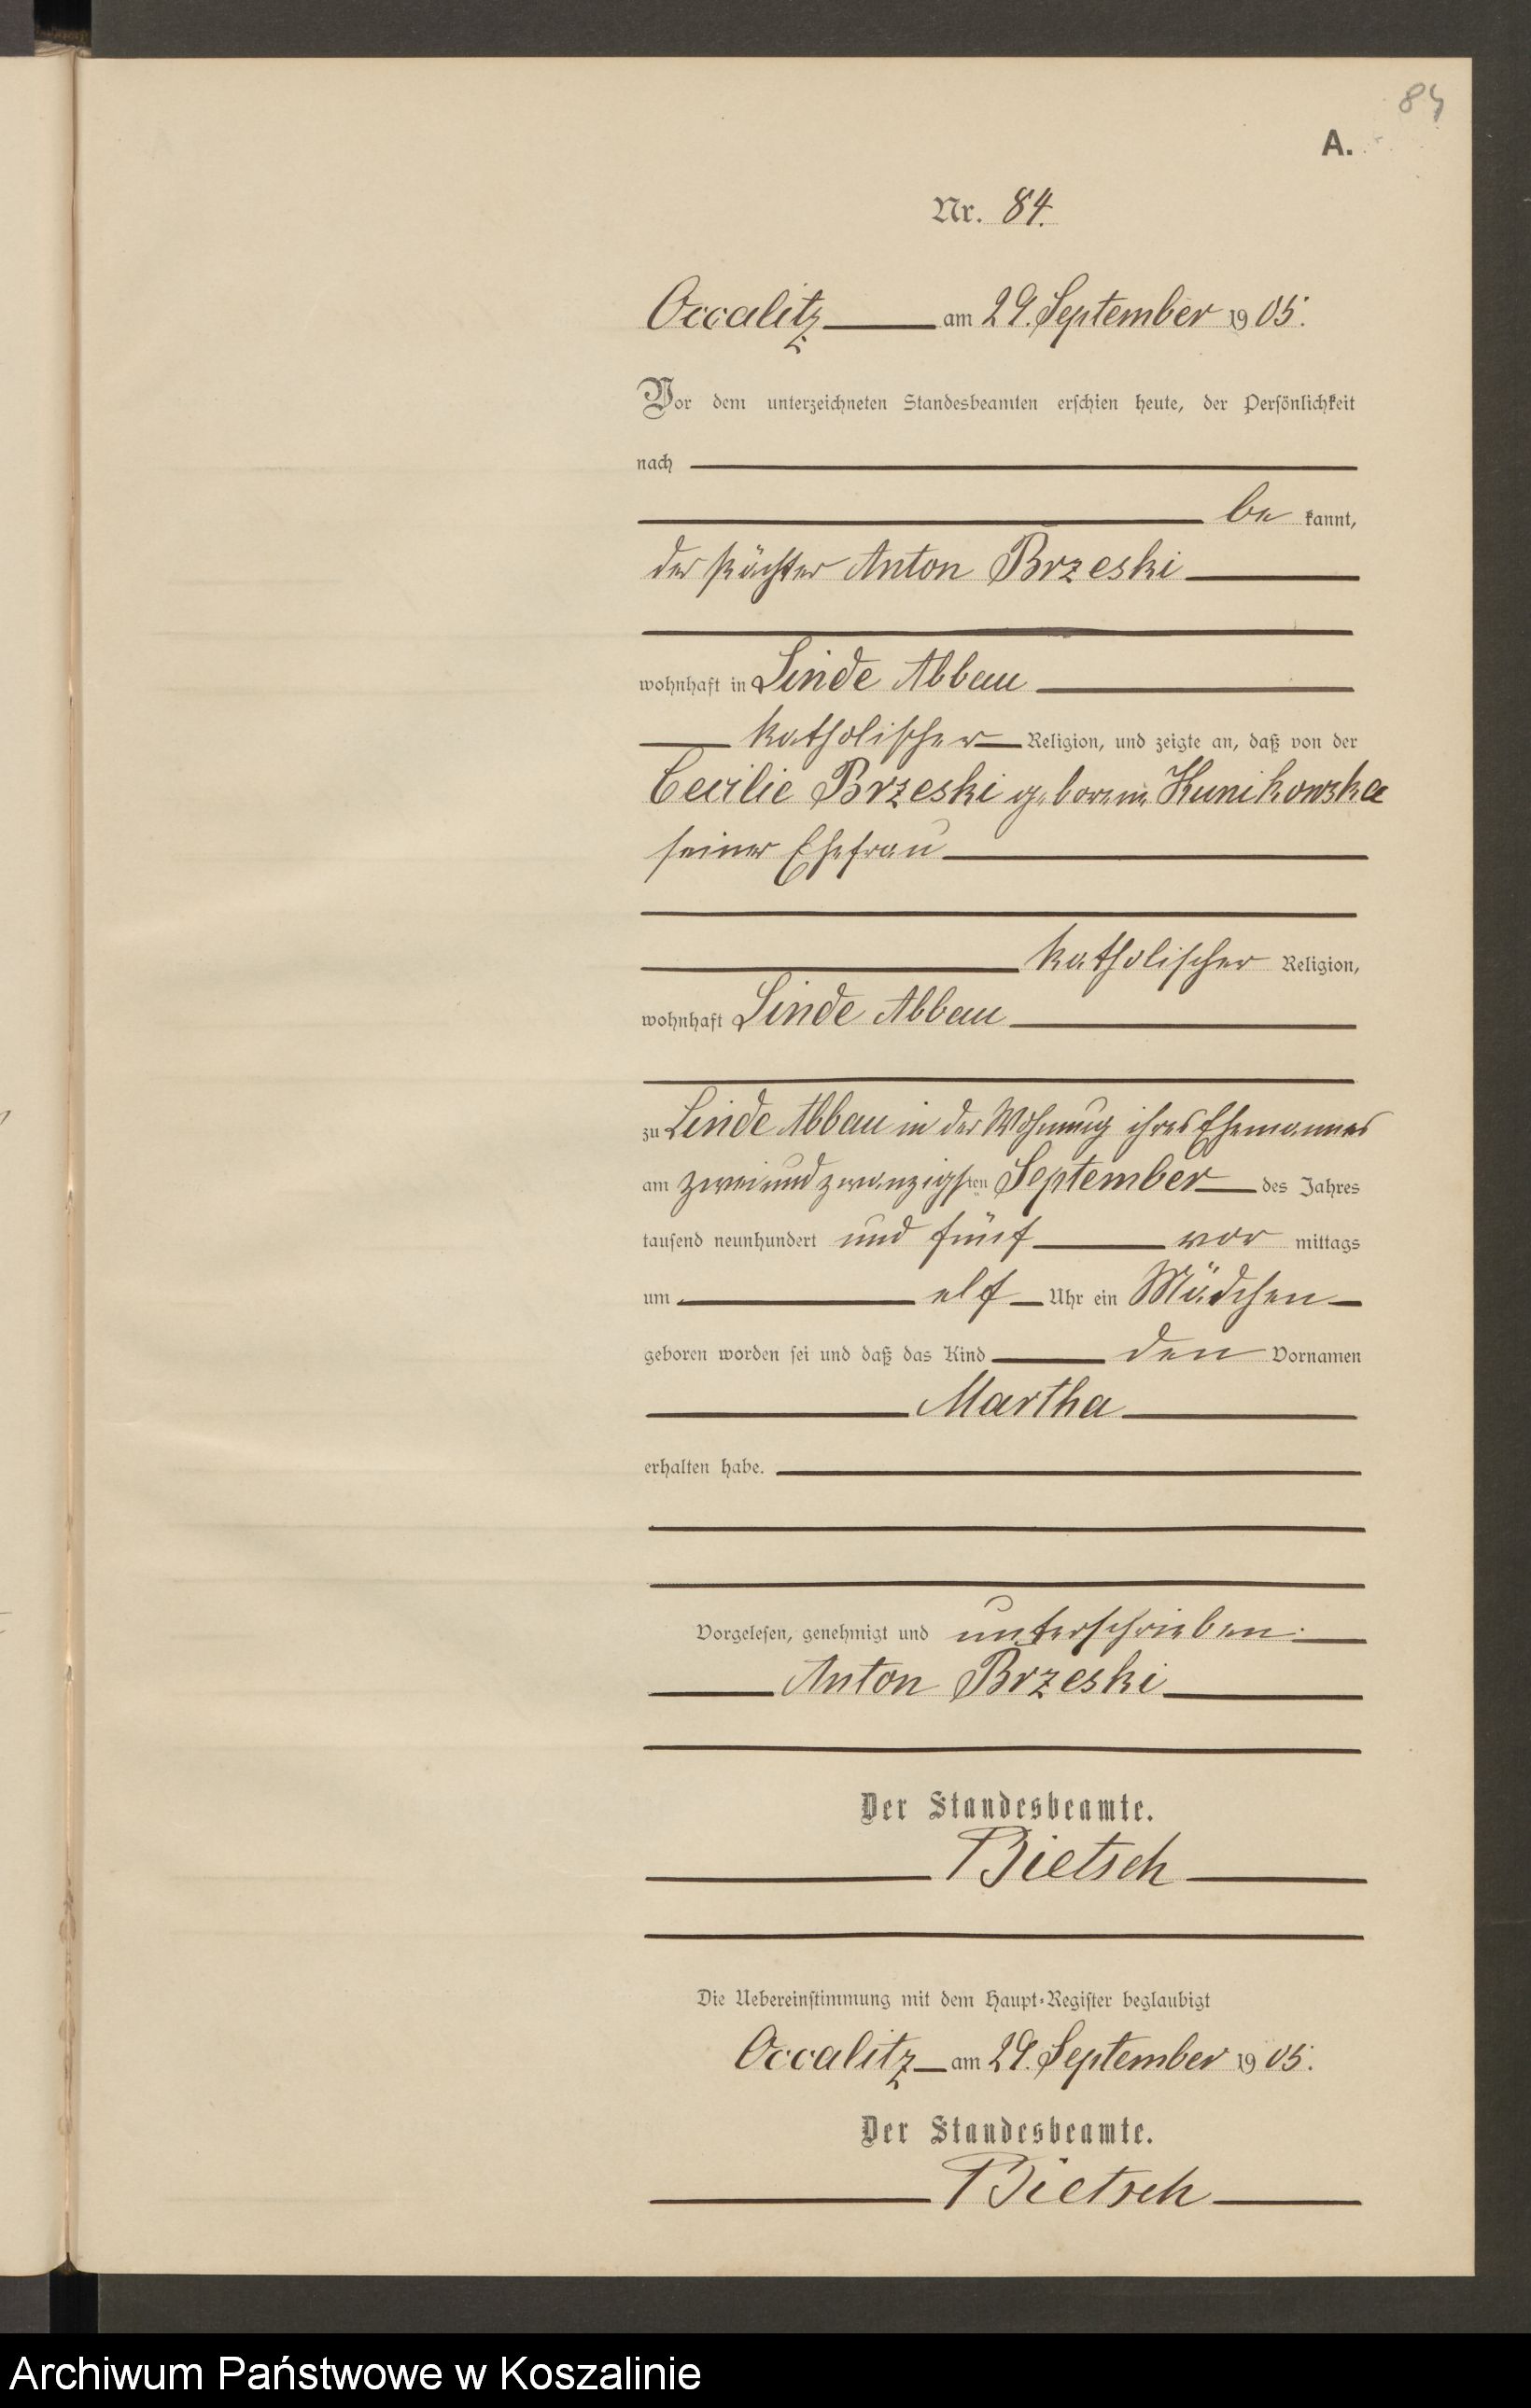 84
A.
Nr. 84.
Occalitz am 29. September 1905.
Vor dem unterzeichneten Standesbeamten erschien heute, der Persönlichkeit
nach
be kannt,
der Pächter Anton Brzeski
wohnhaft in Linde Abbau
katholischer Religion, und zeigte an, daß von der
Cecilie Brzeski geborene Kunikowska
seiner Ehefrau
katholischer Religion,
wohnhaft Linde Abbau
zu Linde Abbau in der Wohnung ihres Ehemannes
am zweiundzwanzigsten September des Jahres
tausend neunhundert und fünf vor mittags
um elf Uhr ein Mädchen
geboren worden sei und daß das Kind den Vornamen
Martha
erhalten habe.
Vorgelesen, genehmigt und unterschrieben.
Anton Brzeski
Der Standesbeamte.
Bietsch
Die Uebereinstimmung mit dem Haupt-Register beglaubigt
Occalitz am 29. September 1905.
Der Standesbeamte.
Bietsch
Archiwum Państwowe w Koszalinie